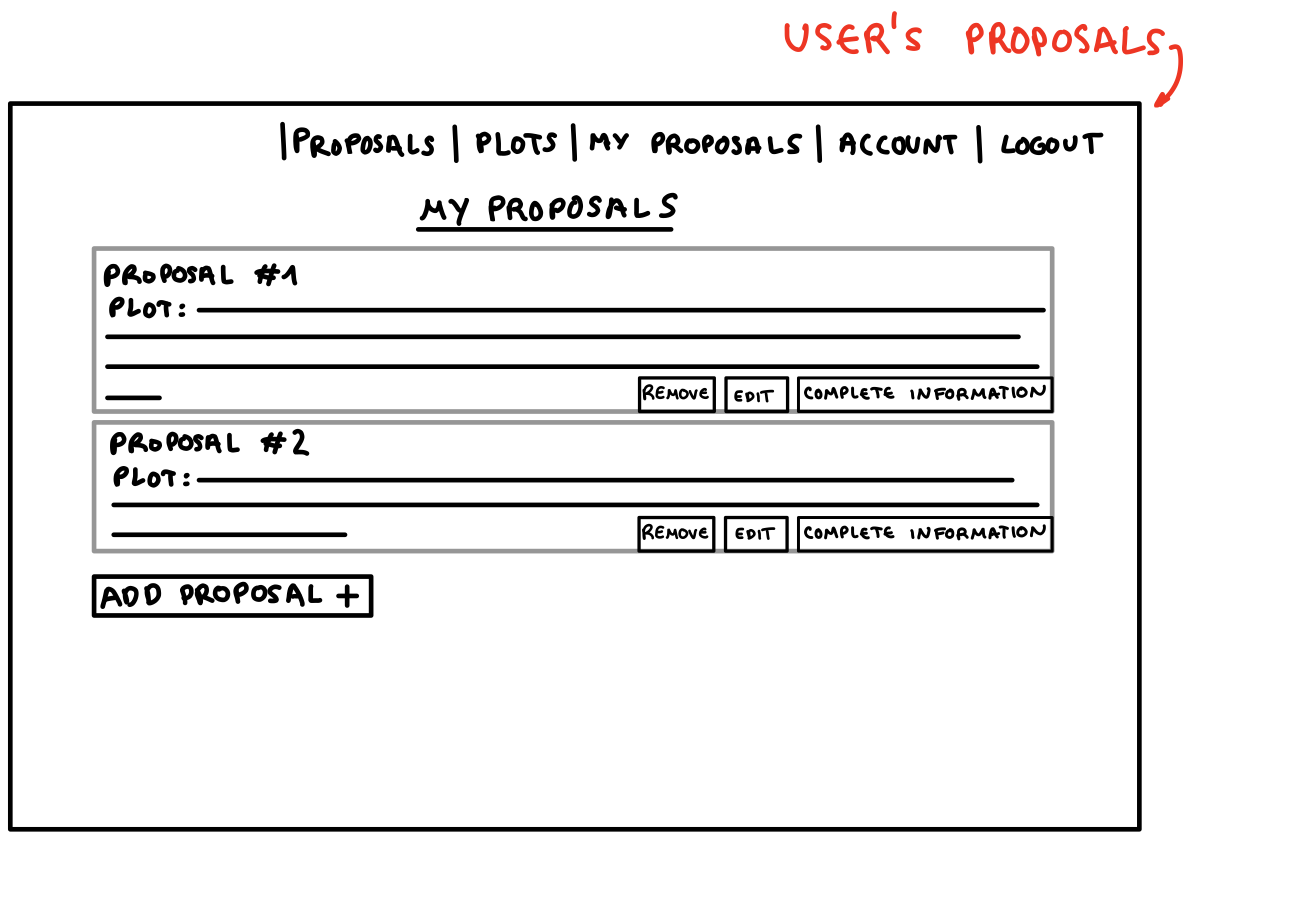 USER'S PROPOSALS
|PROPOSALS | PLOTS | MY PROPOSALS | ACCOUNT | LOGOUT
MY PROPOSALS
PROPOSAL #1
PLOT:
REMOVE EDIT COMPLETE INFORMATION
PROPOSAL #2
PLOT:
REMOVE EDIT COMPLETE INFORMATION
ADD PROPOSAL +